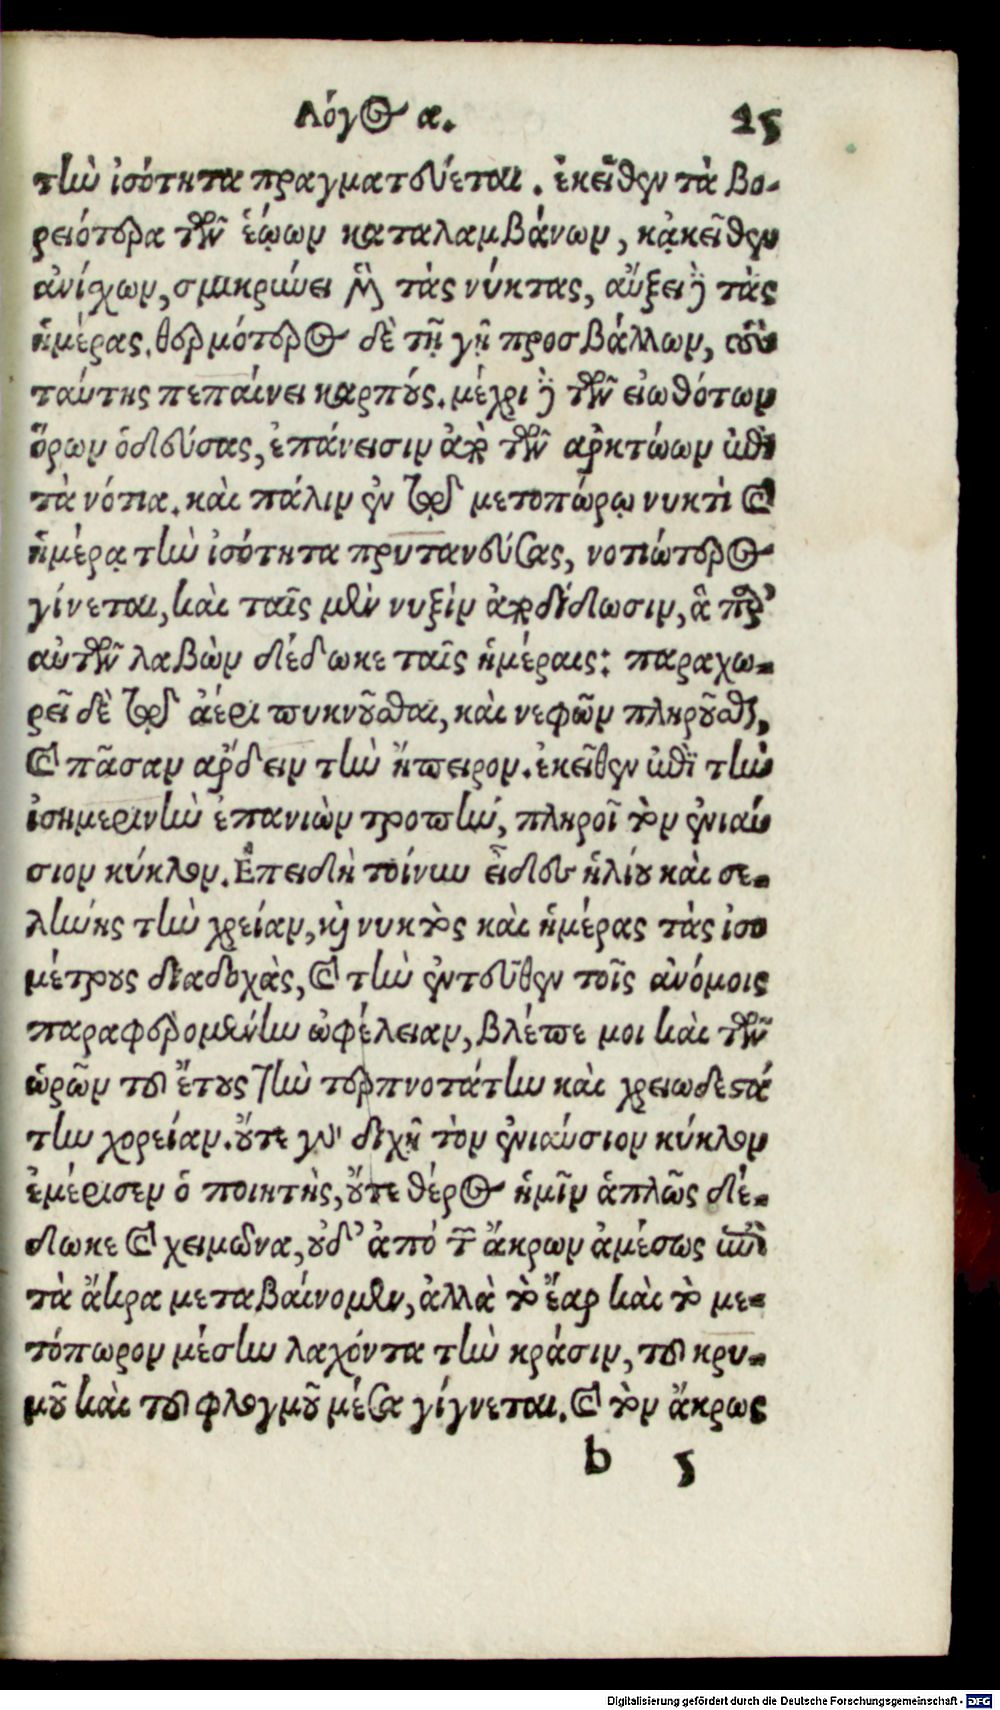 Λόγος α. 25
τὴν ἰσότητα πραγματεύεται. ἐκεῖθεν τὰ βο-
ρειότερα τῶν ἑῴων καταλαμβάνων, κᾀκεῖθεν
ἀνίσχων, σμικρύνει μὲν τὰς νύκτας, αὔξει δὲ τὰς
ἡμέρας. θερμότερος δὲ τῇ γῇ προσβάλλων, τοὺς
ταύτης πεπαίνει καρπούς. μέχρι δὲ τῶν εἰωθότων
ὅρων ὁδεύσας, ἐπάνεισιν ἀπὸ τῶν ἀρκτῴων ἐπὶ
τὰ νότια. καὶ πάλιν ἐν τῷ μετοπώρῳ νυκτὶ καὶ
ἡμέρᾳ τὴν ἰσότητα πρυτανεύσας, νοτιώτερος
γίνεται, καὶ ταῖς μὲν νυξὶν ἀποδίδωσιν, ἃ παρ’
αὐτῶν λαβὼν δέδωκε ταῖς ἡμέραις: παραχω-
ρεῖ δὲ τῷ ἀέρι πυκνοῦσθαι, καὶ νεφῶν πληροῦσθαι,
καὶ πᾶσαν ἄρδειν τὴν ἤπειρον. ἐκεῖθεν ἐπὶ τὴν
ἰσημερινὴν ἐπανιὼν τροπὴν, πληροῖ τὸν ἐνιαύ
σιον κύκλον. Ἐπειδὴ τοίνυν εἶδες ἡλίου καὶ σε-
λήνης τὴν χρείαν, καὶ νυκτὸς καὶ ἡμέρας τὰς ἰσο
μέτρους διαδοχὰς, καὶ τὴν ἐντεῦθεν τοῖς ἀνόμοις
παραφερομένην ὠφέλειαν, βλέπε μοι καὶ τῶν
ὡρῶν τοῦ ἔτους τὴν τερπνοτάτην καὶ χρειωδεστά
την χορείαν. οὔτε γὰρ διχῇ τὸν ἐνιαύσιον κύκλον
ἐμέρισεν ὁ ποιητὴς, οὔτε θέρος ἡμῖν ἁπλῶς δέ-
δωκε καὶ χειμῶνα, οὐδ’ ἀπὸ τῶν ἄκρων ἀμέσως ἐπὶ
τὰ ἄκρα μεταβαίνομεν, ἀλλὰ τὸ ἔαρ καὶ τὸ με-
τόπωρον μέσην λαχόντα τὴν κράσιν, τοῦ κρυ-
μοῦ καὶ τοῦ φλογμοῦ μέσα γίγνεται. καὶ τὸν ἄκρως
b 5
Digitalisierung gefördert durch die Deutsche Forschungsgemeinschaft - DFG